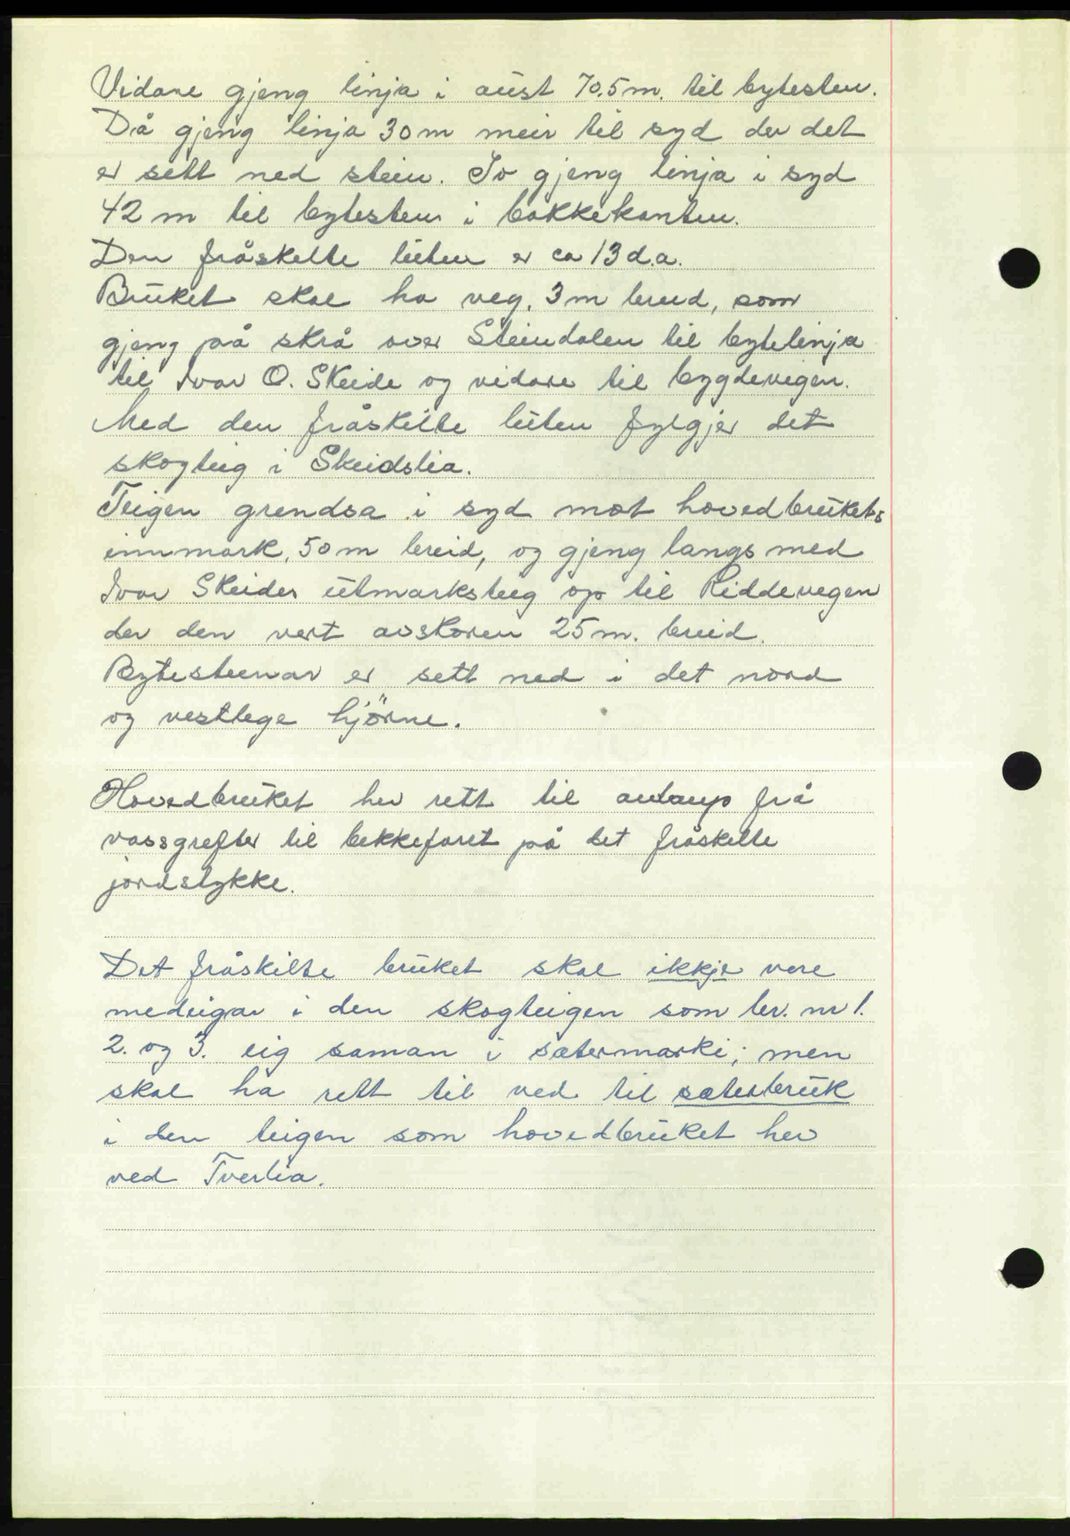 Vidare gjeng linja i aust 70.5 m. til bytestein.
Då gjeng linja 30 m meir til syd der det
er sett ned stein. So gjeng linja i syd
42 m til bytestein i bakkekanten.
Den fråskelte luten er ca 13 d.a.
Bruket skal ha veg, 3 m breid, som
gjeng på skrå over Steindalen til bytelinja
til Ivar O. Skeide og vidare til bygdevegen.
Med den fråskilte luten fylgjer det
skogteig i Skeidslia.
Teigen grendsa i syd mot hovedbrukets
innmark, 50 m breid, og gjeng langs med
Ivar Skeides utmarksteig op til Riddevegen
der den vert avskoren 25 m. breid.
Bytesteinar er sett ned i det nord
og vestlege hjörne.
Hovedbruket hev rett til frå
vassgrefter til bekkefaret på det fråskelte
jordstykke.
Det fråskilte bruket skal ikkje vere
medeigar i den skogteigen som br. nr 1.
2. og 3. eig saman i sætermarki; men
skal ha rett til ved til sæterbruk
i den teigen som hovedbruket hev
ved Tverlia.